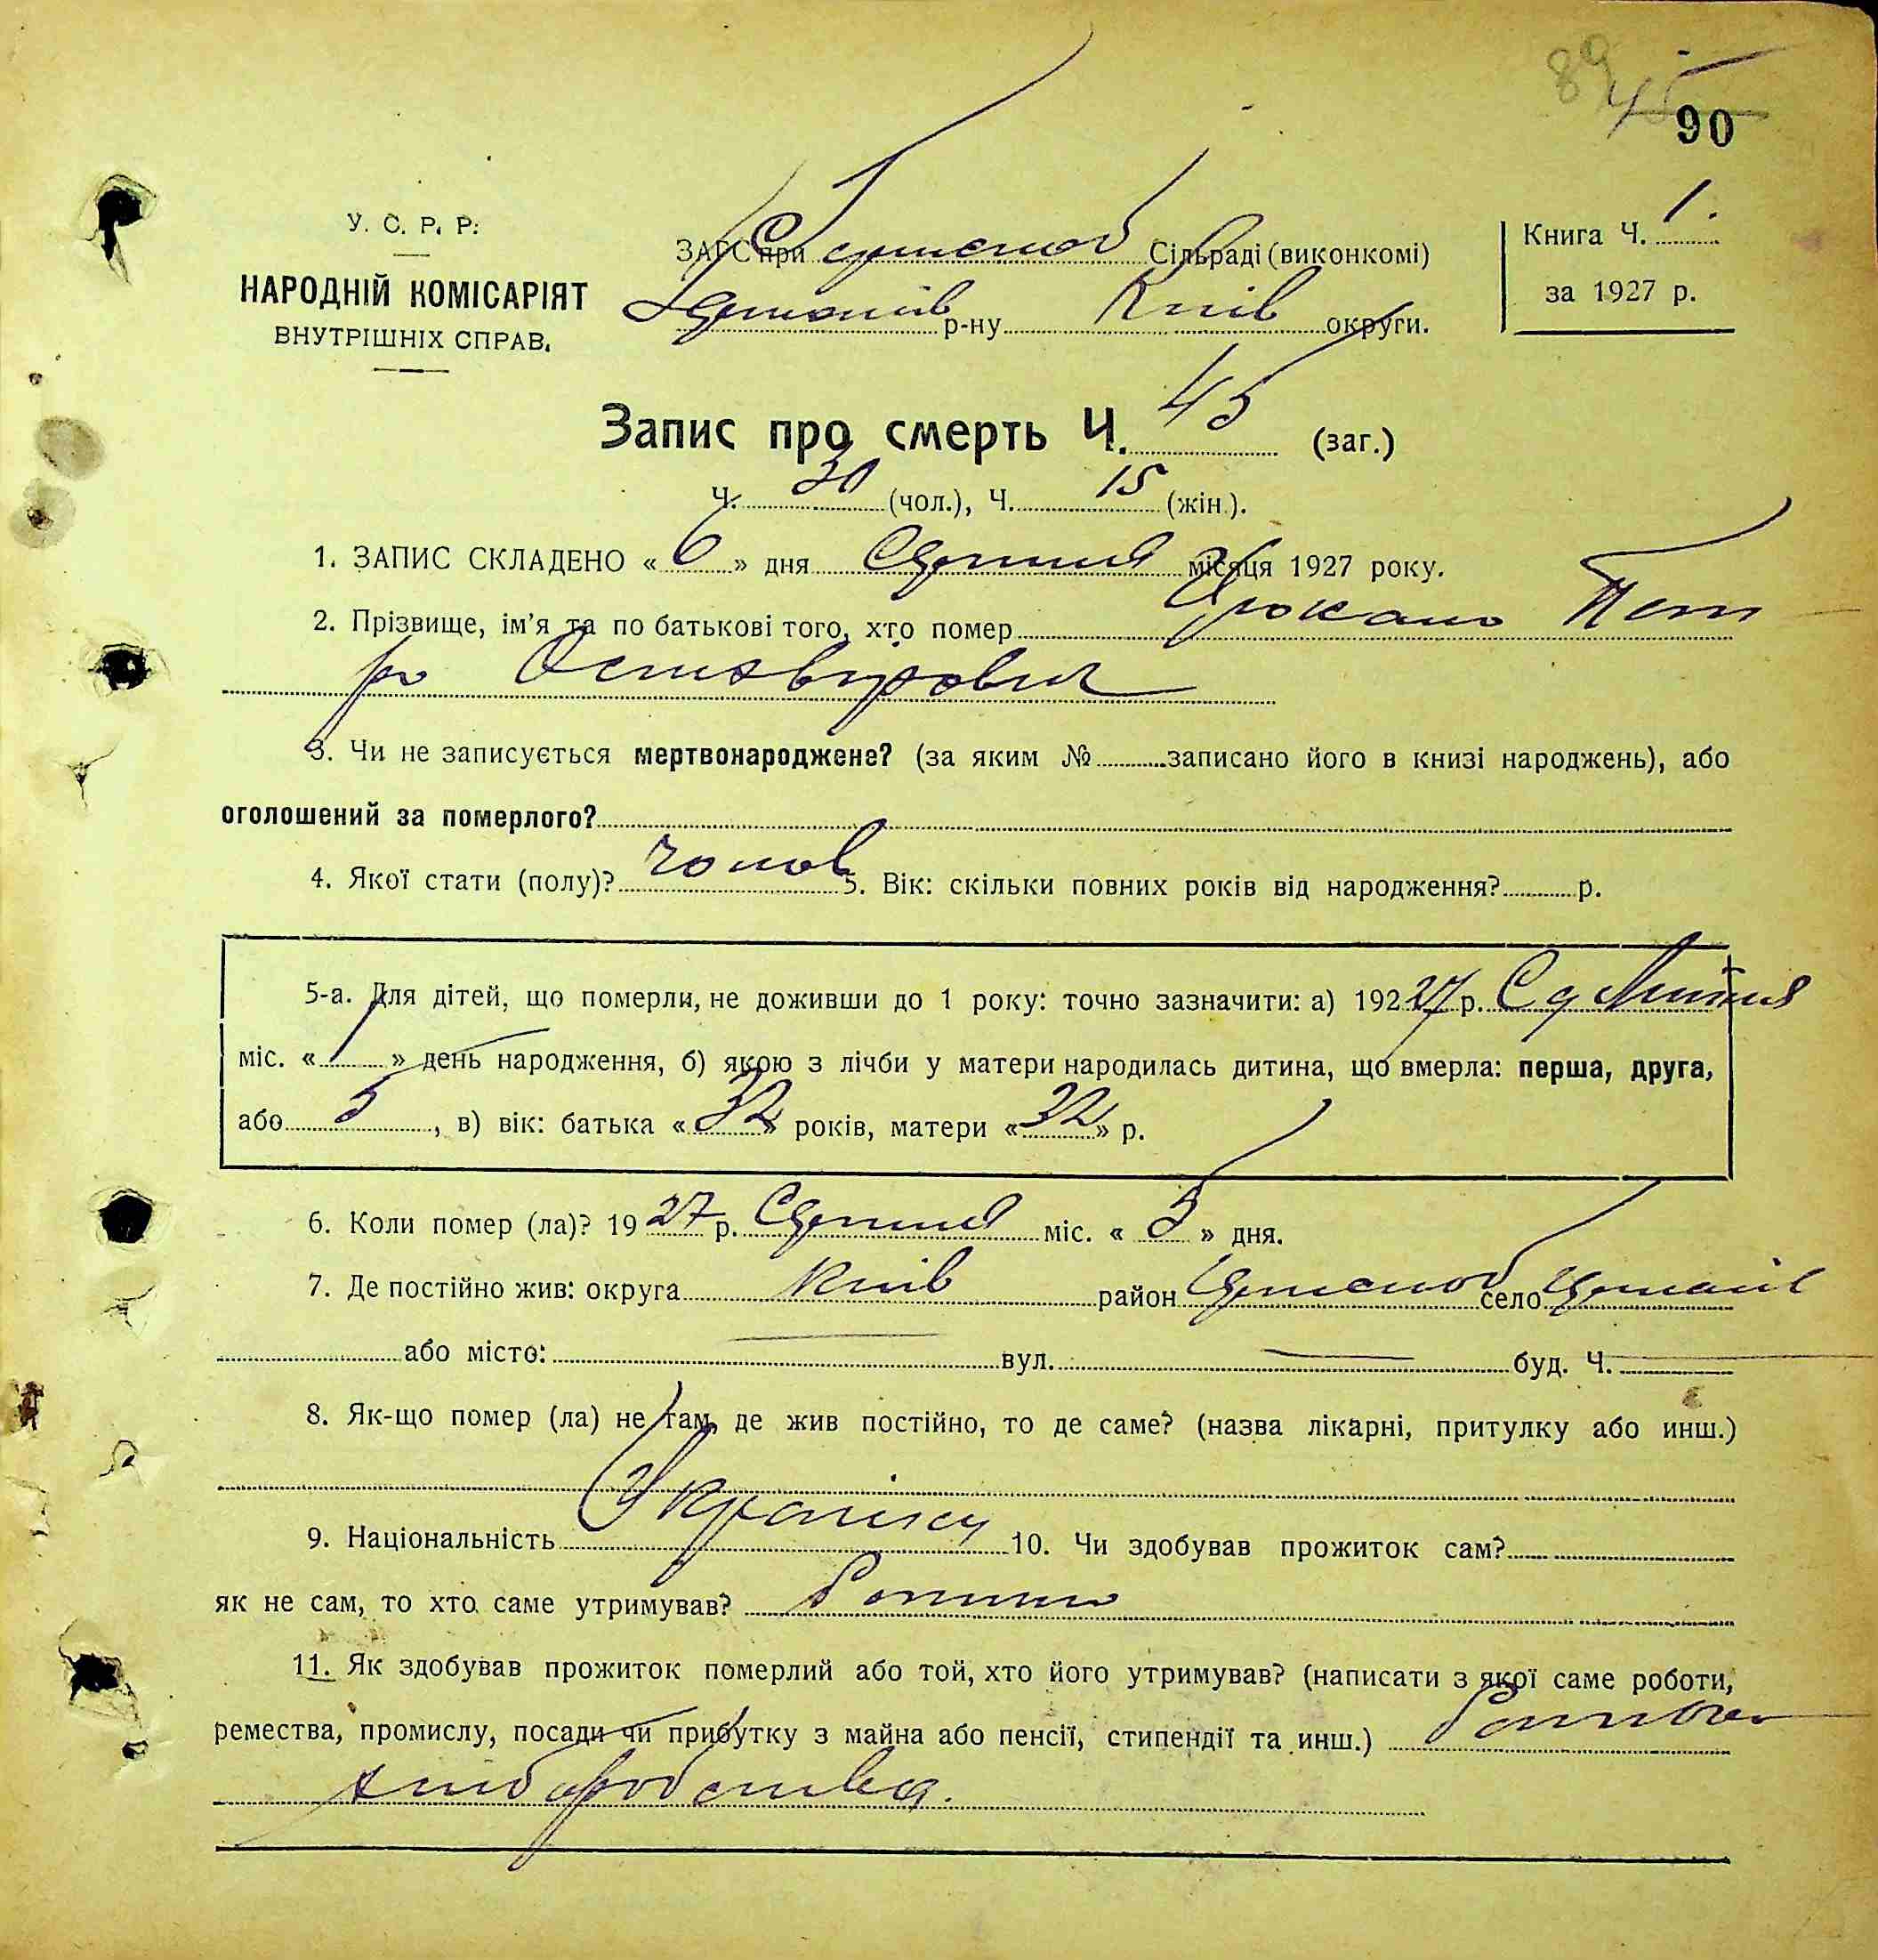 89 45
90
У. С. Р. Р.
НАРОДНІЙ КОМІСАРІЯТ
ВНУТРІШНІХ СПРАВ.
ЗАГС при Сільраді (виконкомі)
р-ну Київ округи.
Книга Ч. 1.
за 1927 р.
Запис про смерть Ч. 45 (заг.)
Ч. 30 (чол.), Ч. 15 (жін.).
1. ЗАПИС СКЛАДЕНО « 6 » дня Серпня місяця 1927 року.
2. Прізвище, ім'я та по батькові того, хто помер Пет
ро
3. Чи не записується мертвонароджене? (за яким № записано його в книзі народжень), або
оголошений за померлого?
4. Якої стати (полу)? чолов 5. Вік: скільки повних років від народження? р.
5-а. Для дітей, що померли, не доживши до 1 року: точно зазначити: а) 192 27 р. Липня
міс. « 1 » день народження, б) якою з лічби у матери народилась дитина, що вмерла: перша, друга,
або 5, в) вік: батька « 32 » років, матери « 32 » р.
6. Коли помер (ла)? 19 27 р. Серпня міс. « 5 » дня.
7. Де постійно жив: округа Київ район село
або місто: вул. буд. Ч.
8. Як-що помер (ла) не там, де жив постійно, то де саме? (назва лікарні, притулку або инш.)
9. Національність 10. Чи здобував прожиток сам?
як не сам, то хто саме утримував?
11. Як здобував прожиток померлий або той, хто його утримував? (написати з якої саме роботи,
ремества, промислу, посади чи прибутку з майна або пенсії, стипендії та инш.)
хліборобства.